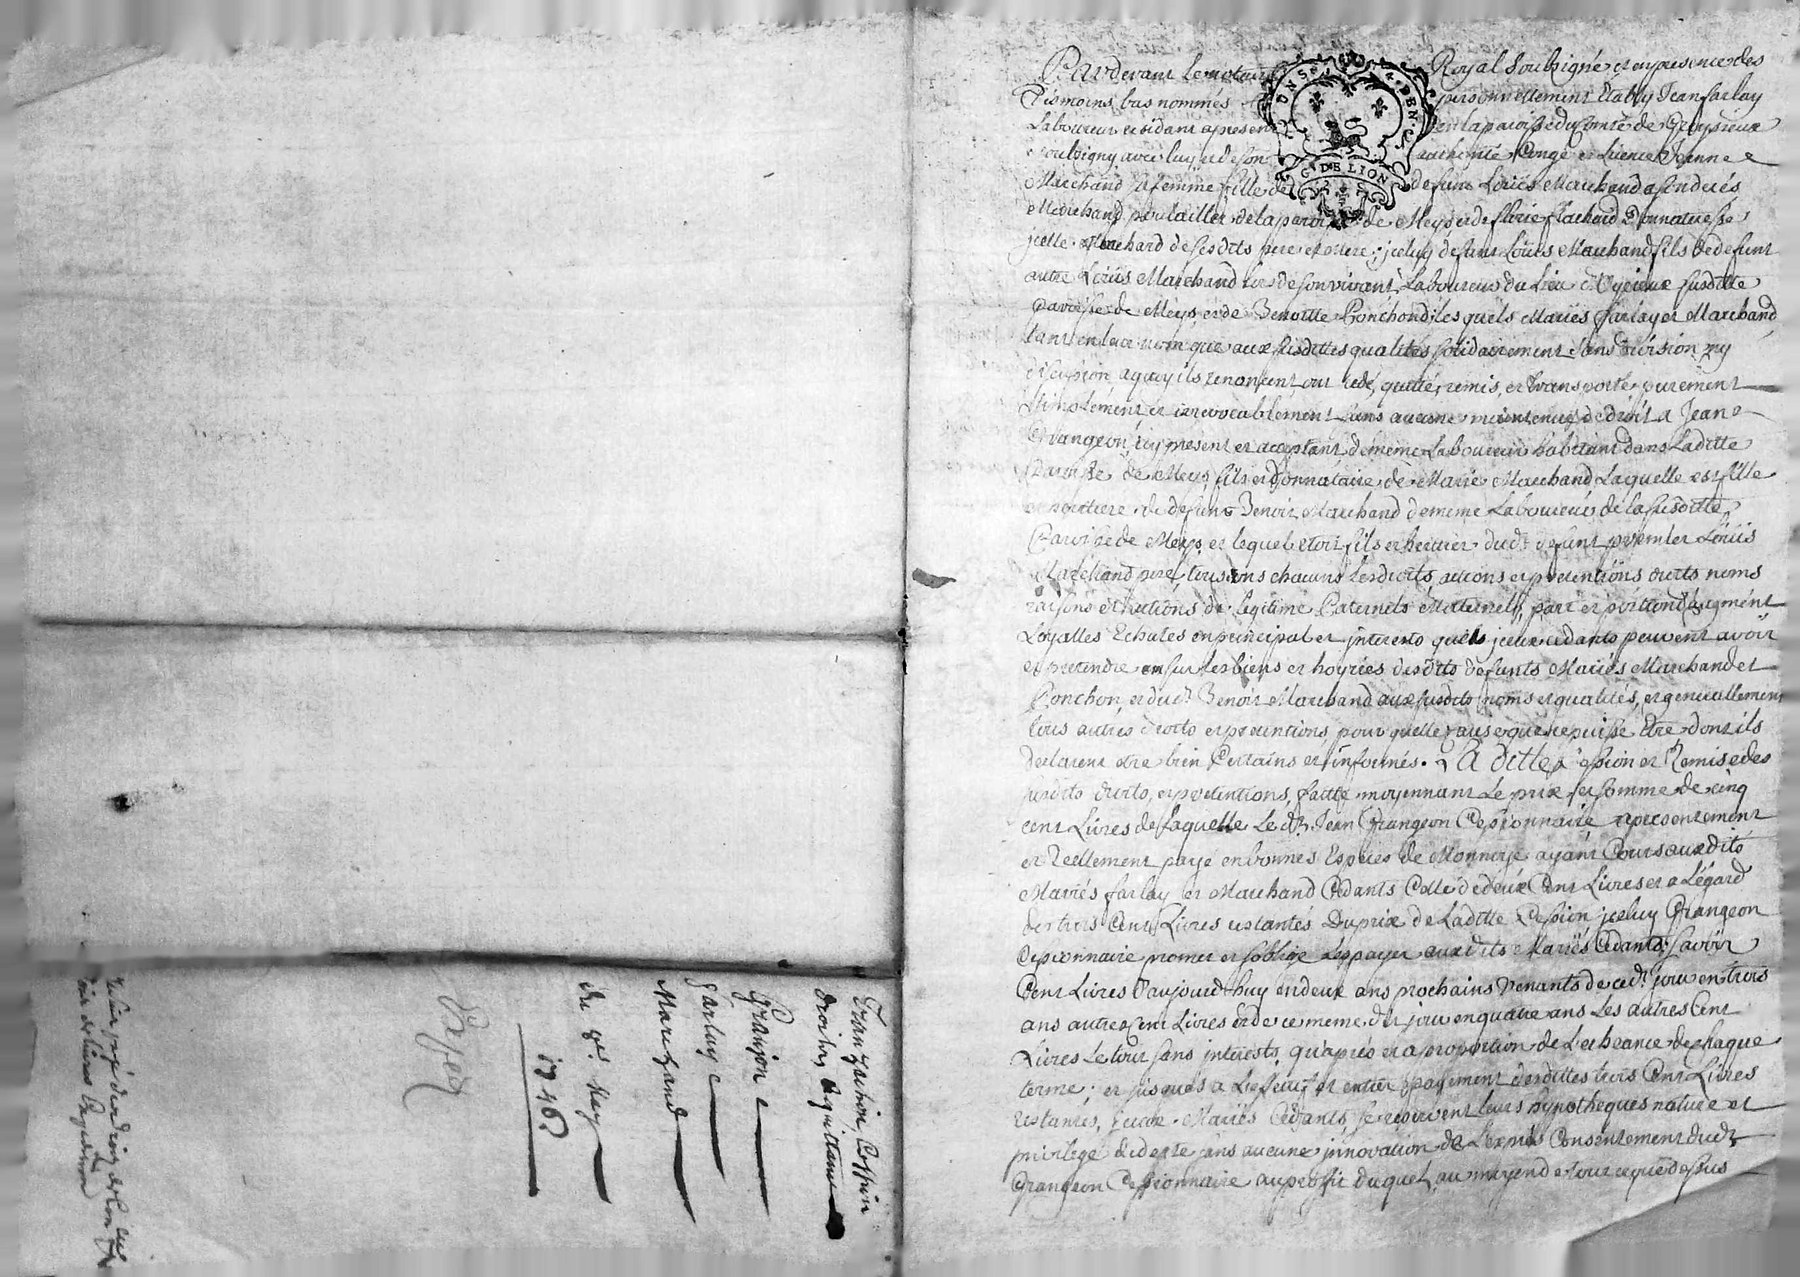 Pardevant Le notaire Royal Soubzigné et en presence des
Tesmoins bas nommés personnellement Etably Jean farlay
Laboureur residant a present en la paroisse du
soubzigny avec luy et de son authorité Congé et Licence Jeanne
Marchand sa femme fille de defunt Loüis Marchand
Marchand poulailler de la paroisse de Meys et de florie flachard Donnatresse
jcelle Marchand de sesdits pere et mere; jceluy defunt Loüis Marchand fils de defunt
autre Loüis Marchand de son vivant Laboureur du Lieu susditte
paroisse de Meys et de Benoitte Ponchond; lesquels Mariés farlay et Marchand
tant en leur nom que aux susdittes qualités solidairement sans division ny
a quoy ils renoncent, ont cedé, quitté, remis, et transporté purement
et irrevocablement sans aucune maintenue de droit a Jean
Grangeon, icy present et acceptant de meme Laboureur habitant dans Laditte
Paroisse de Meys fils et donnataire de Marie Marchand Laquelle est fille
de defunt Benoit Marchand de meme Laboureur de la susditte
Paroisse de Meys et lequel etoit fils et heritier dudt defunt premier Loüis
Marchand pere, tous et uns chacuns Les droits, actions et pretentions droits noms
raisons et actions de legitime Paternels et Maternels, part et portion d'augment
Loyalles Echutes en principal et interests quels jceux cedants peuvent avoir
et pretendre en sur les biens et hoyries desdits defunts Mariés Marchand et
Ponchon, et dudt Benoit Marchand aux susdits noms et qualités, et generallement
tous autres droits et pretentions pour quelle cause que ce puisse Etre dont ils
declarent etre bien Certains et informés. La ditte Cession et Remise des
susdits droits, et pretentions, faitte moyennant Le prix et somme de cinq
cent Livres de laquelle Le dt Jean Grangeon Cessionnaire a presentement
et Reellement payé en bonnes Especes de Monnoye ayant Cours auxdits
Mariés farlay et Marchand Cedants Celle de deux Cent Livres et a Légard
des trois Cent Livres restantes Du prix de Laditte Cession jceluy Grangeon
Cessionnaire promet et s'oblige Les payer auxdits Mariés Cedants; sçavoir
Cent Livres d'aujourdhuy en deux ans prochains venants de cedt jour en trois
ans autres Cent Livres et de ce meme dt jour en quatre ans Les autres Cent
Livres Le tout sans interests qu'aprés et a proportion de L'echeance de chaque
terme; et jusques a L'effectif et entier payement desdittes trois Cent Livres
restantes, jceux Mariés Cedants, se reservent leurs hypotheques nature et
privilege de datte sans aucune jnnovation de L'exprés Consentement dudt
Grangeon Cessionnaire au profit duquel, au moyen de tout ce que dessus
droits et quittance
Granjon
farlay
Marchand
du 8e May
1746